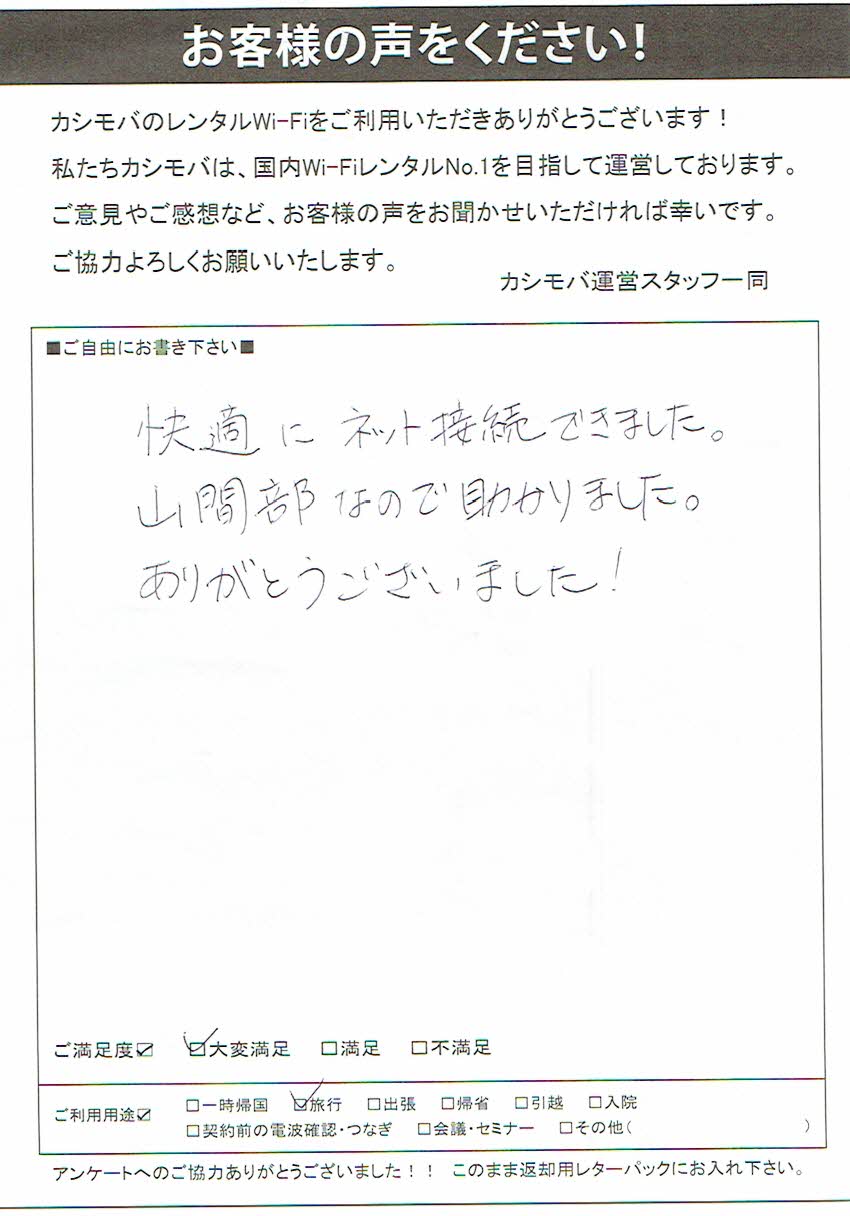 お客様の声をください!
カシモバのレンタルWi-Fiをご利用いただきありがとうございます!
私たちカシモバは、国内Wi-FiレンタルNo.1を目指して運営しております。
ご意見やご感想など、お客様の声をお聞かせいただければ幸いです。
ご協力よろしくお願いいたします。
カシモバ運営スタッフ一同
■ご自由にお書き下さい■
快適にネット接続できました。
山間部なので助かりました。
ありがとうございました!
ご満足度☑ ☑大変満足 □満足 □不満足
ご利用用途☑ □一時帰国 ☑旅行 □出張 □帰省 □引越 □入院
□契約前の電波確認・つなぎ □会議・セミナー □その他( )
アンケートへのご協力ありがとうございました!! このまま返却用レターパックにお入れ下さい。